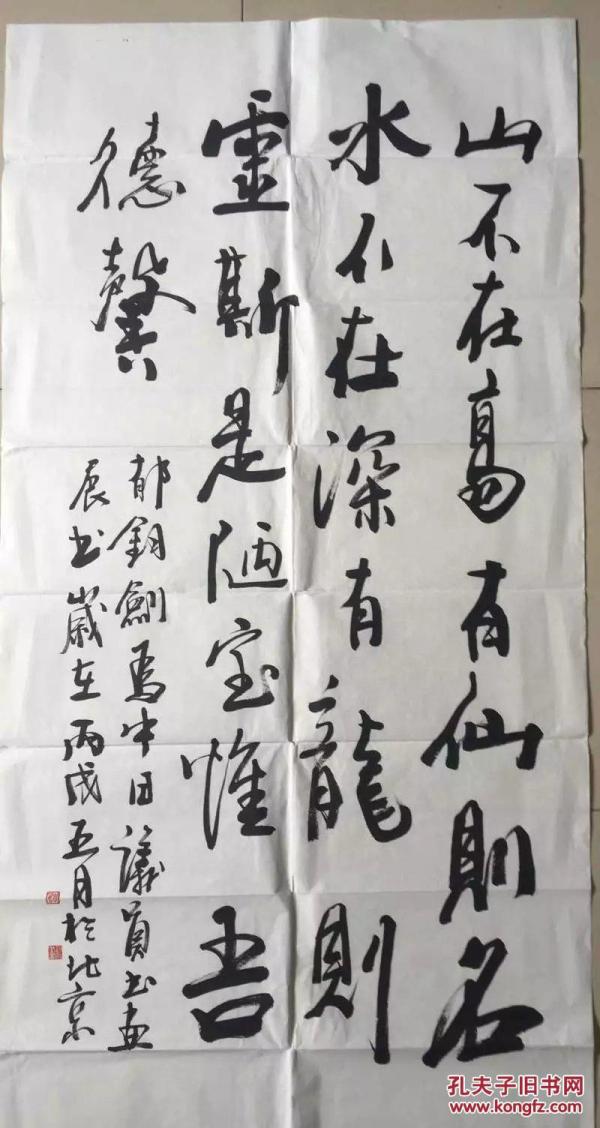 山不在高有仙則名
水不在深有龍則
靈斯是陋室惟吾
德馨
郁鈞劍為中日議員書畫
展書歲在丙戌五月於北京
孔夫子旧书网
www.kongfz.com